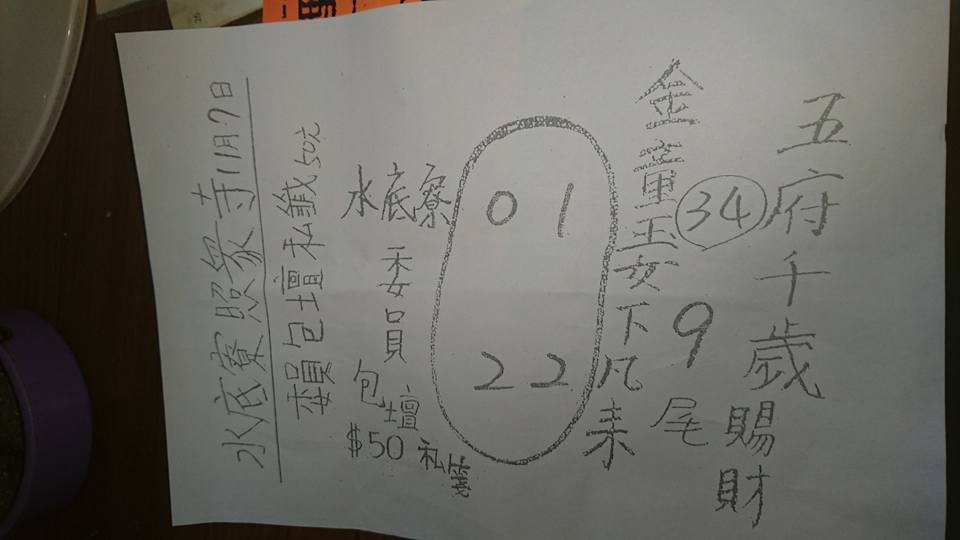 五府千歲賜財
金童玉女下凡來
34
9尾
01
22
水底寮
委員
包壇
$50
私籤
水底寮照眾寺11月7日
委員包壇私籤50元